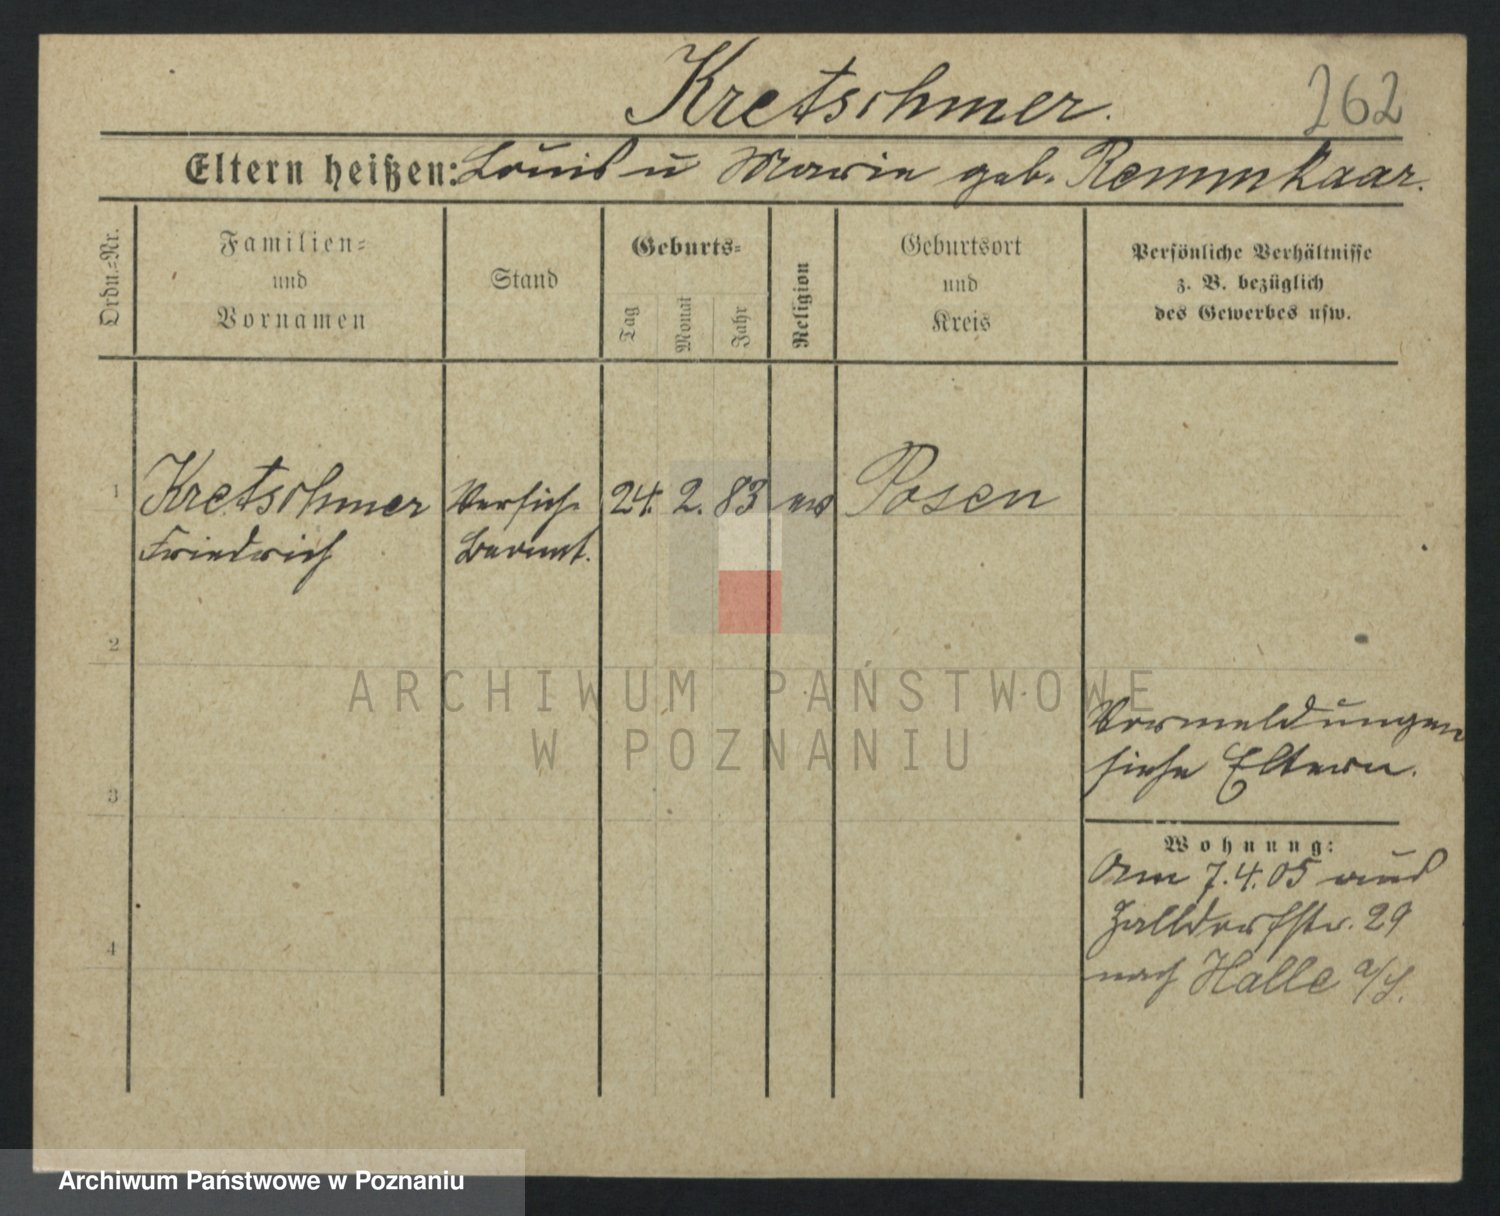 Kretschmer.
262
Eltern heißen: Louis u Marie geb. Remmkaar.
Ordn.=Nr.
Familien=
und
Vornamen
Stand
Geburts=
Tag
Monat
Jahr
Religion
Geburtsort
und
Kreis
Persönliche Verhältnisse
z. B. bezüglich
des Gewerbes usw.
1 Kretschmer Versich. 24. 2. 83 ev Posen
Friedrich Beamt.
2
ARCHIWUM PAŃSTWOWE
W POZNANIU
Vormeldungen
siehe Eltern.
3
Wohnung:
Am 7.4.05 aus
29
nach Halle a/S.
4
Archiwum Państwowe w Poznaniu